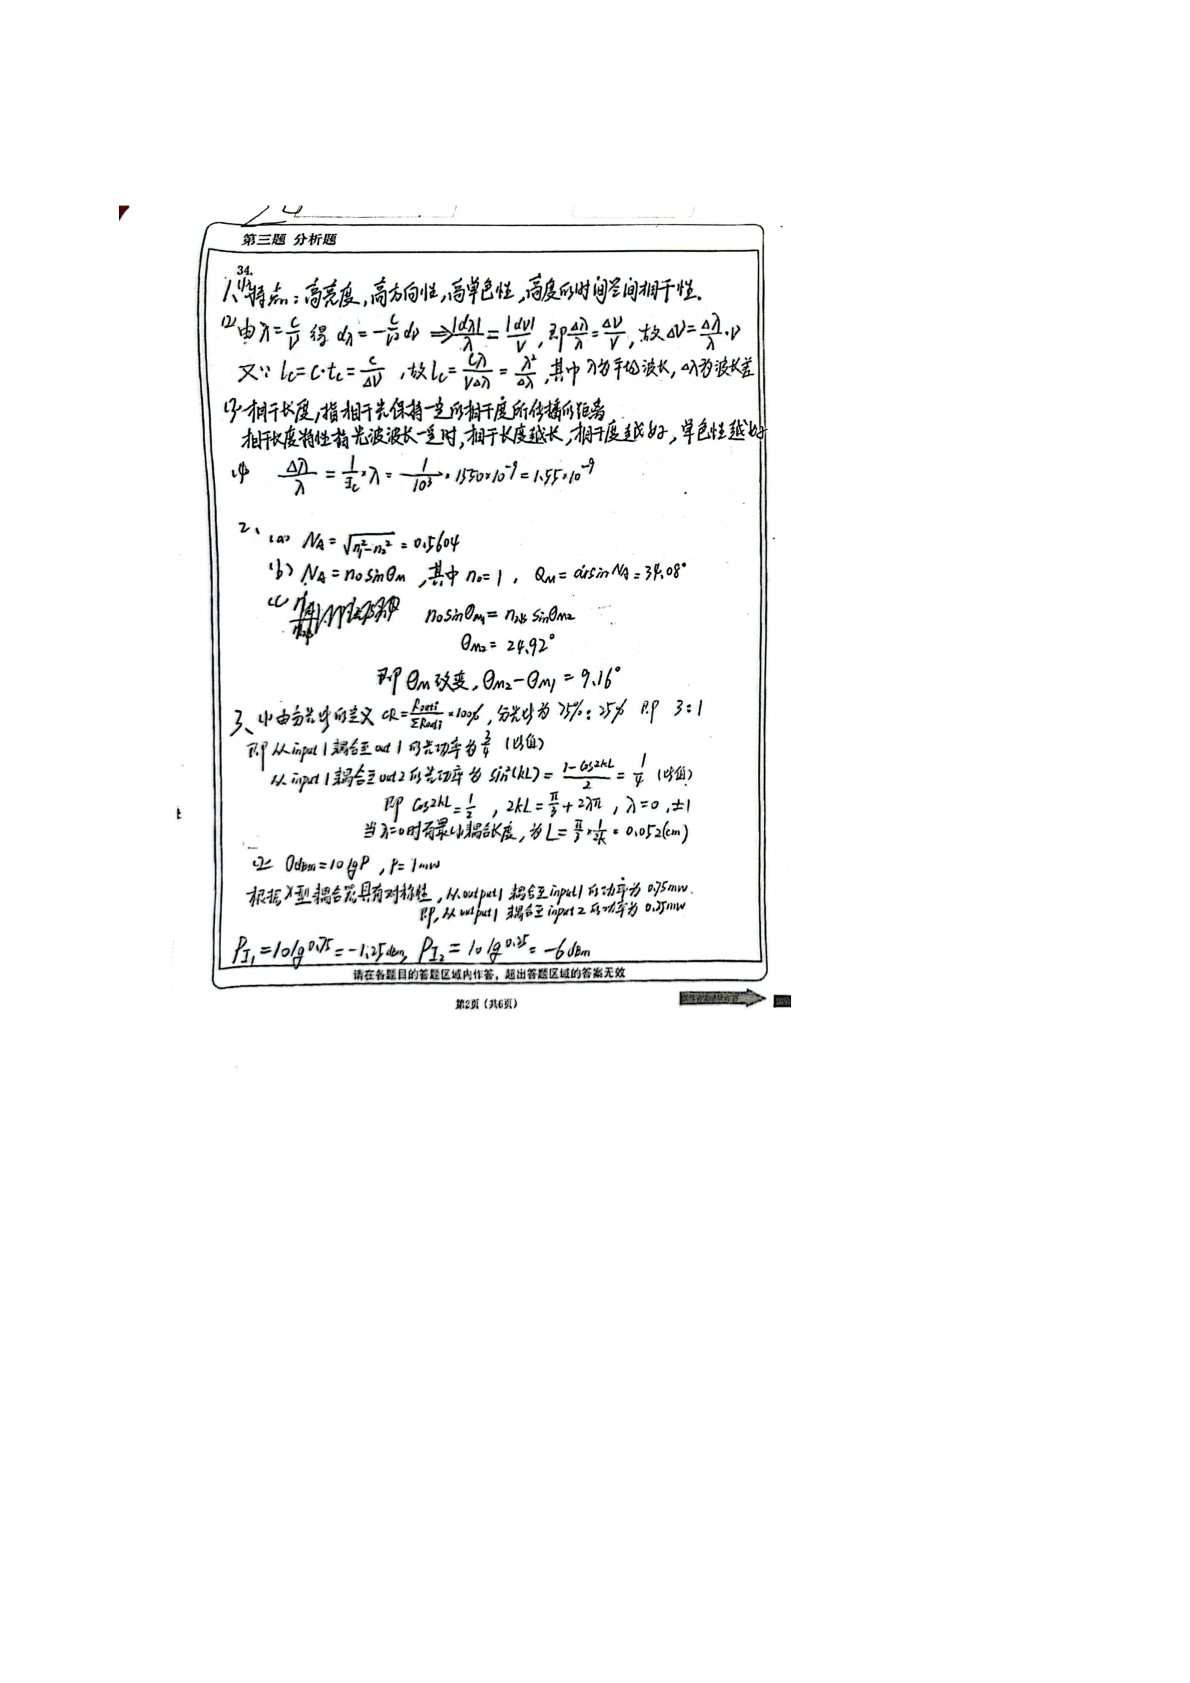 第三题 分析题
34.
1、(1) 特点：高亮度，高方向性，高单色性，高度的时间空间相干性.
(2) 由λ=c/ν 得 dλ=-c/ν² dν ⇒ |dλ|/λ = |dν|/ν, 即Δλ/λ=Δν/ν, 故Δν=Δλ/λ·ν
又∵ lc=c·tc=c/Δν ,故lc=cλ/νΔλ=λ²/Δλ,其中λ为平均波长,Δλ为波长差
(3) 相干长度,指相干光保持一定的相干度所传播的距离
相干长度特性指光波波长一定时,相干长度越长,相干度越好,单色性越好
(4) Δλ/λ = 1/lc·λ = 1/10³ × 1550×10⁻⁹=1.55×10⁻⁹
2、(a) NA=√n₁²-n₂² = 0.5604
(b) NA=n₀sinθM ,其中n₀=1, θM=arcsinNA=34.08°
(c) n₀sinθM₁= n水 sinθM2
θM2= 24.92°
即θM改变, θM2-θM1=9.16°
3、(1) 由分光比的定义 CR=Pouti/ΣPouti×100%, 分光比为75%:25% 即 3:1
即从input1耦合至out1的光功率为3/4 (比值)
从input1耦合至out2的光功率为 sin²(kL)= 1-cos2kL/2 = 1/4 (比值)
即 cos2kL=1/2 , 2kL=π/3+2λπ , λ=0,±1
当λ=0时有最小耦合长度,为L=π/3×1/2k=0.052(cm)
(2) 0dBm=10lgP ,P=1mw
根据X型耦合器具有对称性,从output1耦合至input1的功率为0.75mw.
即,从output1耦合至input2的功率为0.25mw
PI₁=10lg0.75=-1.25dBm, PI₂=10lg0.25=-6dBm
请在各题目的答题区域内作答，超出答题区域的答案无效
第2页（共6页）